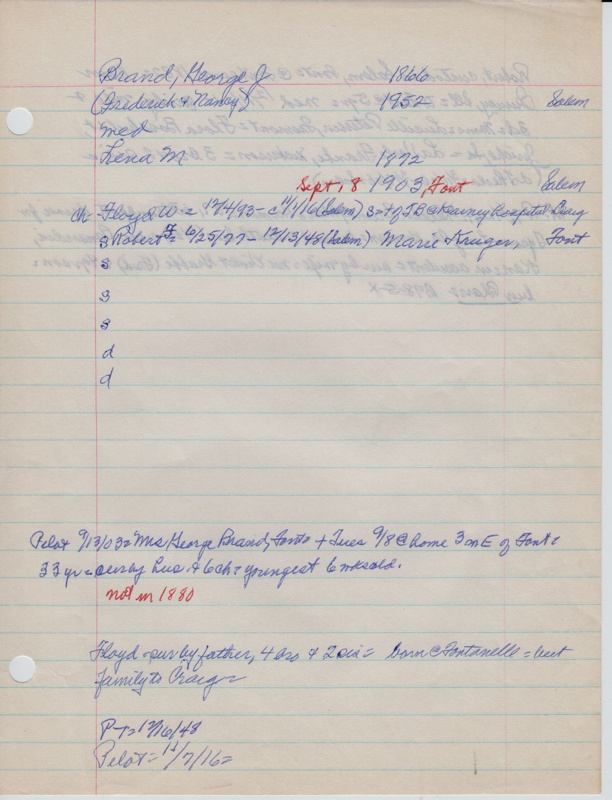 Brand, George J. 1866
(Frederick & Nancy) 1952 Salem
med
Lena M 1872
Sept. 8 1903, Font Salem
Ch = Floyd W = 12/4/93 - c 11/1/16 (Salem) s = + of TB @ Kearney hospital Craig
s Robert F = 6/25/97 - 12/13/48 (Salem) Marie Kruger, Font
s
s
s
s
d
d
Pilot 9/13/03 = Mrs George Brand, Font = + Tues 9/8 @ home 3 m E of Font =
33 yr = sur by hus & 6 ch = youngest 6 wks old.
not in 1880
Floyd - sur by father, 4 bro & 2 sis = born @ Fontanelle =
family to Craig =
P-T = 12/16/48
Pilot = 11/7/16 =